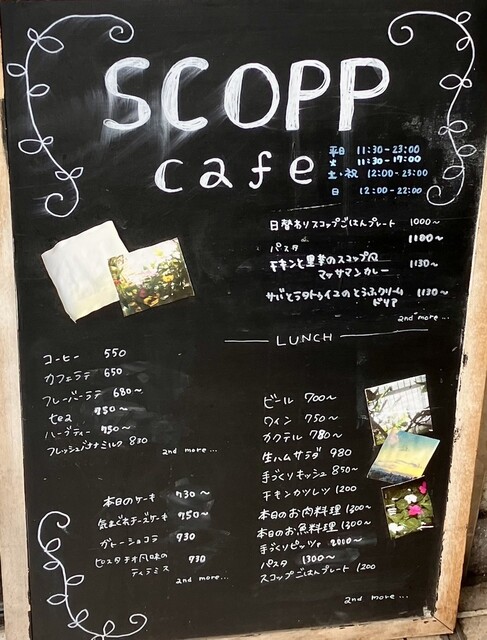 SCOPP
cafe
平日 11:30-23:00
火 11:30-17:00
土・祝 12:00-23:00
日 12:00-22:00
日替わりスコップごはんプレート 1000〜
パスタ 1100〜
チキンと里芋のスコップ
マッサマンカレー 1130〜
サバとラタトゥイユのとうふクリーム
ドリア 1130〜
and more...
LUNCH
コーヒー 550
カフェラテ 650
フレーバーラテ 680〜
tea 750〜
ハーブティー 750〜
フレッシュバナナミルク 830
and more...
本日のケーキ 730〜
気まぐれチーズケーキ 750〜
ガトーショコラ 730
ピスタチオ風味の
ティラミス 730
and more...
ビール 700〜
ワイン 750〜
カクテル 780〜
生ハムサラダ 980
手づくりキッシュ 850〜
チキンカツレツ 1200
本日のお肉料理 1300〜
本日のお魚料理 1300〜
手づくりピッツァ 2000〜
パスタ 1300〜
スコップごはんプレート 1200
and more...